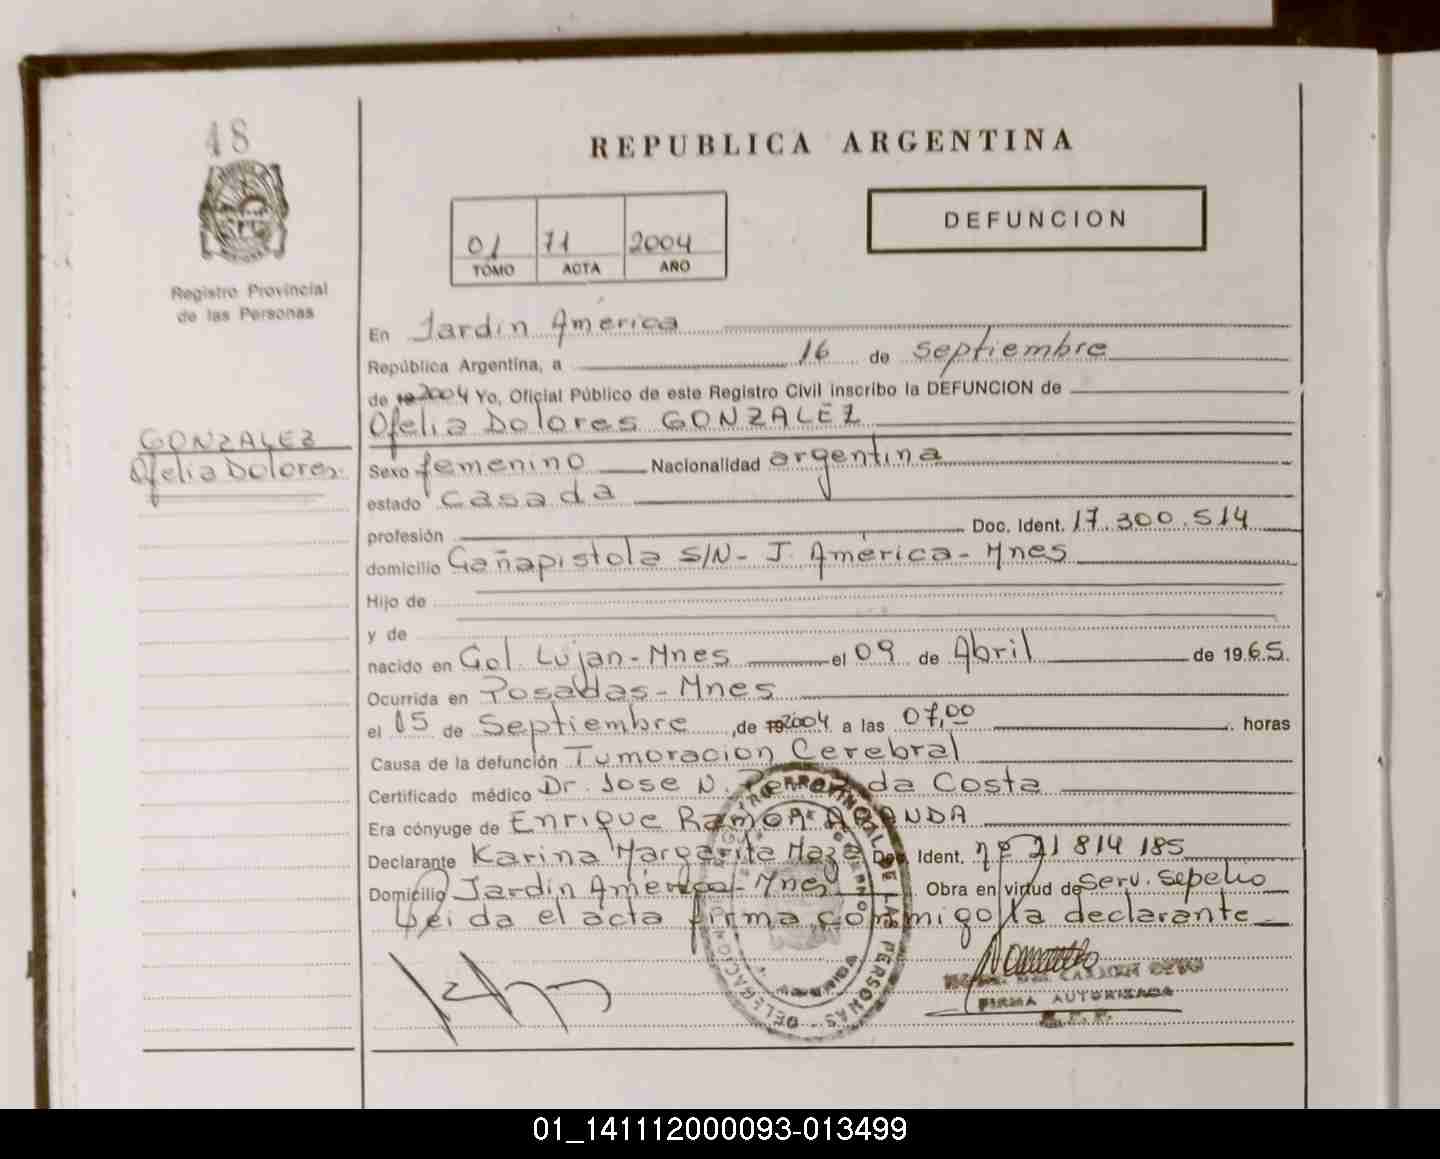 48
Registro Provincial
de las Personas
GONZALEZ
Ofelia Dolores
REPUBLICA ARGENTINA
DEFUNCION
01 71 2004
TOMO ACTA AÑO
En Jardín América
República Argentina, a 16 de septiembre
de 19 2004 Yo, Oficial Público de este Registro Civil inscribo la DEFUNCION de
Ofelia Dolores GONZALEZ
Sexo femenino Nacionalidad argentina
estado casada
profesión Doc. Ident. 17.300.514
domicilio Cañapistola S/N- J. América- Mnes
Hijo de
y de
nacido en Col Luján- Mnes el 09 de Abril de 1965.
Ocurrida en Posadas- Mnes
el 15 de Septiembre, de 19 2004 a las 07,00 horas
Causa de la defunción Tumoracion Cerebral
Certificado médico Dr. Jose N. da Costa
Era cónyuge de Enrique Ramón
Declarante Karina Margarita Maza Doc. Ident. nº 21 814 185
Domicilio Jardín América- Mnes Obra en virtud de Serv. Sepelio
Leida el acta firma conmigo la declarante
REGISTRO PROVINCIAL DE LAS PERSONAS
DELEGACION
FIRMA AUTORIZADA
R.P.P.
01_141112000093-013499